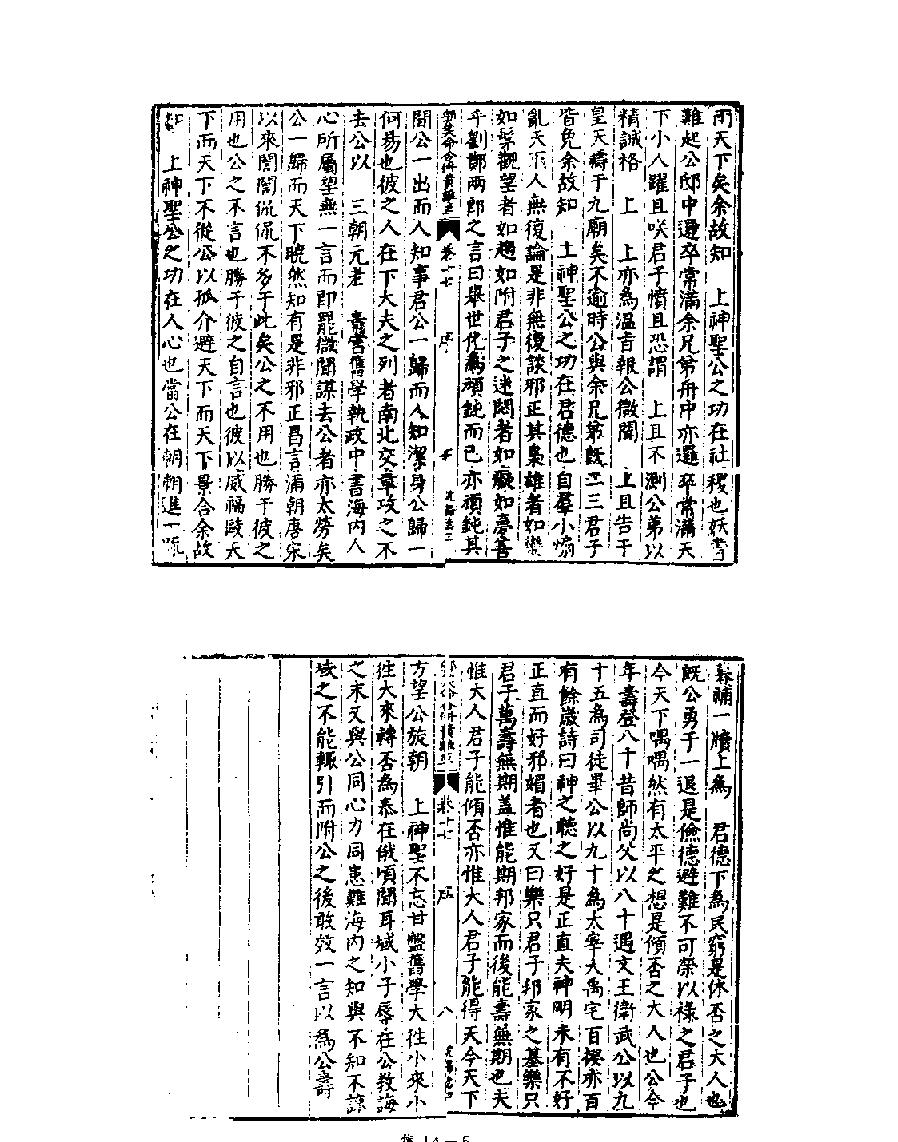 而天下矣余故知　上神聖公之功在社稷也妖書
難起公邸中邏卒常滿余兄弟舟中亦邏卒常滿天
下小人躍且咲君子憤且恐謂　上且不測公第以
精誠格　上　上亦爲溫旨報公微聞　上且告于
皇天禱于九廟矣不逾時公與余兄弟旣二三君子
皆免余故知　上神聖公之功在君德也自羣小煽
亂天下人無復論是非無復談邪正其梟雄者如
如觀望者如趨如附君子之迷悶者如癡如夢善
乎劉鄭兩郎之言曰舉世侘爲頑鈍而已亦頑鈍其
卷十七　序
間公一出而人知事君公一歸而人知潔身公歸一
何易也彼之人在下大夫之列者南北交章攻之不
去公以　三朝元老　舊學執政中書海內人
心所屬望無一言而卽罷微聞謀去公者亦太勞矣
公一歸而天下曉然知有是非邪正昌言滿朝唐宋
以來誾誾侃侃不多于此矣公之不用也勝于彼之
用也公之不言也勝于彼之自言也彼以威福敺天
下而天下不從公以孤介避天下而天下景合余故
知　上神聖公之功在人心也當公在朝朝進一疏
暮補一牘上爲　君德下爲民窮是休否之大人也
旣公勇于一退是儉德避難不可榮以祿之君子也
今天下喁喁然有太平之想是傾否之大人也公今
年壽登八十昔師尚父以八十遇文王衛武公以九
十五爲司徒畢公以九十爲太宰大禹宅百揆亦百
有餘歲詩曰神之聽之好是正直夫神明未有不好
正直而好邪媚者也又曰樂只君子邦家之基樂只
君子萬壽無期蓋惟能期邦家而後能壽無期也夫
惟大人君子能傾否亦惟大人君子能得天今天下
卷十七　序　八
方望公旋朝　上神聖不忘甘盤舊學大徃小來小
徃大來轉否爲泰在俄頃間耳城小子辱在公敎誨
之末又與公同心力同患難海內之知與不知不諒
城之不能輙引而附公之後敢效一言以爲公壽
14—5